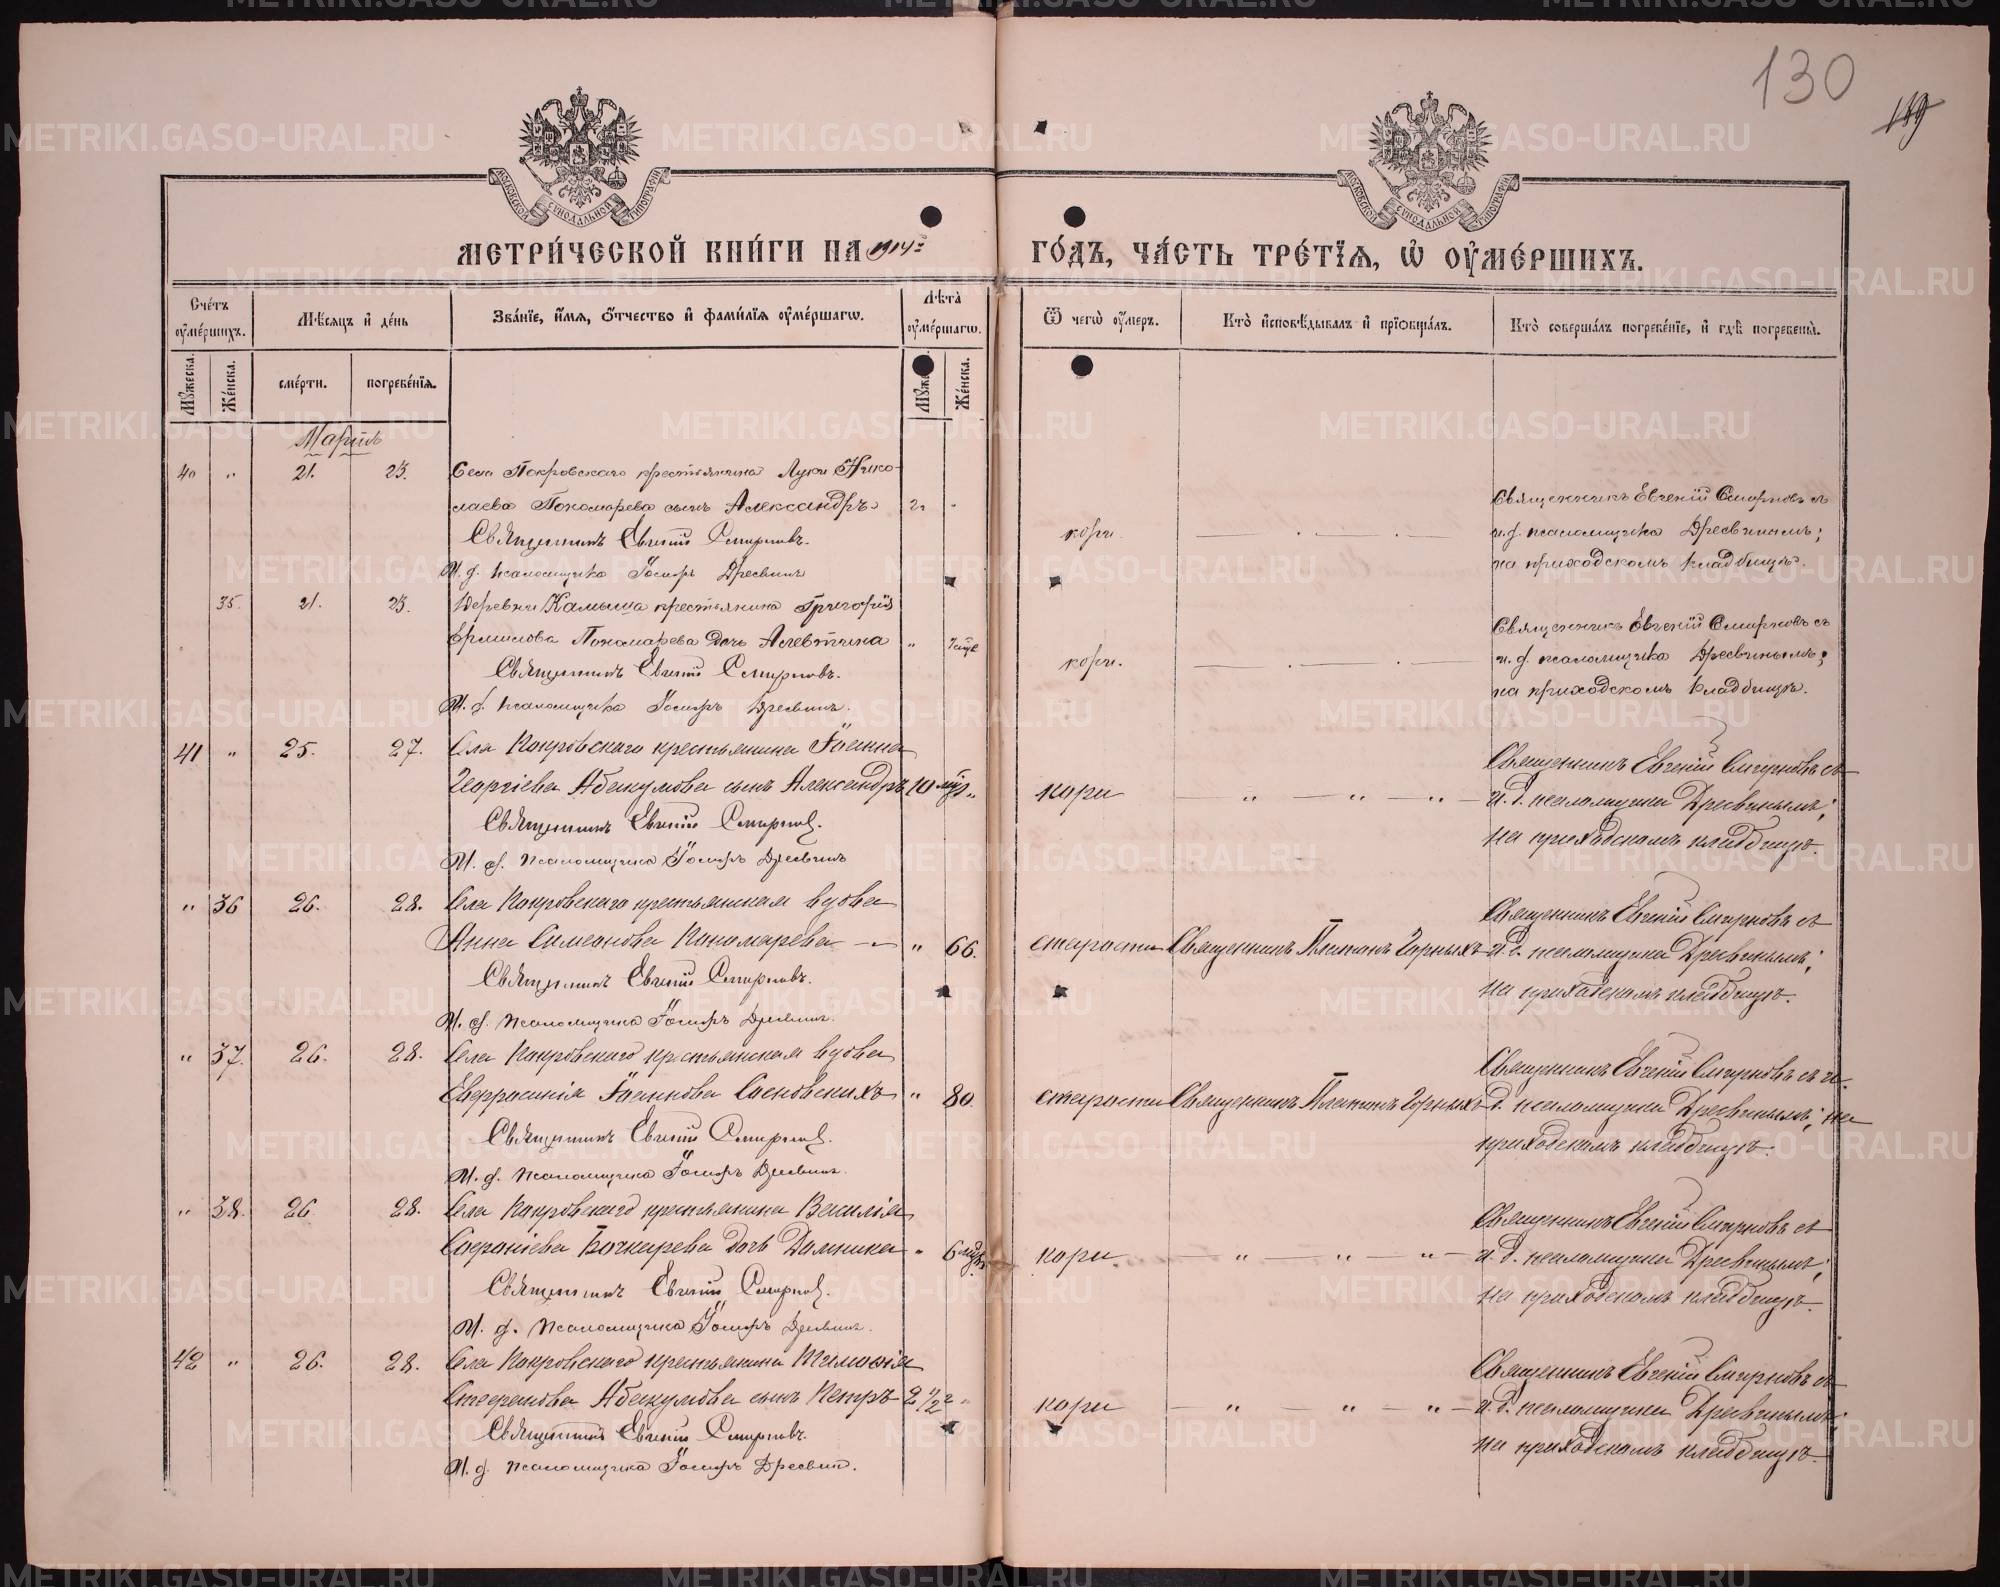 130
119
МОСКОВСКОЙ СѴНОДАЛЬНОЙ ТИПОГРАФІИ
МОСКОВСКОЙ СѴНОДАЛЬНОЙ ТИПОГРАФІИ
МЕТРИ́ЧЕСКОЙ КНИ́ГИ НА 1914 ГО́ДЪ, ЧА́СТЬ ТРЕ́ТІѦ, Ѡ҆ ОУ҆МЕ́РШИХЪ.
Сче́тъ оу҆ме́ршихъ.
Мѣ́сѧцъ и҆ де́нь
Зва́нїе, и҆́мѧ, ѻ҆́тчество и҆ фами́лїѧ оу҆ме́ршагѡ.
Лѣ́та оу҆ме́ршагѡ.
Ѿ чегѡ̀ оу҆́меръ.
Кто̀ и҆сповѣ́дывалъ и҆ прїѻбща́лъ.
Кто̀ соверша́лъ погребе́нїе, и҆ гдѣ̀ погребены̀.
Мꙋ́жеска. Же́нска. сме́рти. погребе́нїѧ. Мꙋ́же Же́нска.
Мартъ
40 " 21. 23. Села Покровскаго крестьянина Луки Нико-
лаева Пономарева сынъ Александръ 2 "
Священникъ Евгений Смирновъ.
И. д. псаломщика Іосифъ Дресвинъ
кори.
Священникъ Евгеній Смирновъ съ
и. д. псаломщика Дресвинымъ;
на приходскомъ кладбищѣ.
35. 21. 23. Деревни Камыша крестьянина Григорія
Ермилова Пономарева дочь Алевтина "
Священникъ Евгений Смирновъ.
И. д. псаломщика Іосифъ Дресвинъ.
кори.
Священникъ Евгеній Смирновъ съ
и. д. псаломщика Дресвинымъ;
на приходскомъ кладбищѣ.
41 " 25. 27. Села Покровскаго крестьянина Іоанна
Георгіева Абакумова сынъ Александръ 10 мѣс. "
Священникъ Евгений Смирнов.
И. д. псаломщика Іосифъ Дресвинъ
кори — " — " — " —
Священникъ Евгеній Смирновъ съ
и. д. псаломщика Дресвинымъ;
на приходскомъ кладбищѣ.
" 36 26. 28. Села Покровскаго крестьянская вдова
Анна Симеонова Пономарева " 66.
Священникъ Евгений Смирновъ.
И. д. псаломщика Іосифъ Дресвинъ.
старости Священникъ Платонъ Горныхъ
Священникъ Евгеній Смирновъ съ
и. д. псаломщика Дресвинымъ;
на приходскомъ кладбищѣ.
" 37. 26. 28. Села Покровскаго крестьянская вдова
Евфросинія Іоаннова Сосновскихъ " 80.
Священникъ Евгений Смирнов.
И. д. псаломщика Іосифъ Дресвинъ.
старости Священникъ Платонъ Горныхъ
Священникъ Евгеній Смирновъ съ и.
д. псаломщика Дресвинымъ; на
приходскомъ кладбищѣ.
" 38. 26. 28. Села Покровскаго крестьянина Василія
Софоніева Бочкарева дочь Домника " 6 мѣс.
Священникъ Евгений Смирнов.
И. д. псаломщика Іосифъ Дресвинъ.
кори. — " — " — " —
Священникъ Евгеній Смирновъ съ
и. д. псаломщика Дресвинымъ;
на приходскомъ кладбищѣ.
42 " 26. 28. Села Покровскаго крестьянина Тимофея
Стефанова Абакумова сынъ Петръ 2 1/2 "
Священникъ Евгений Смирновъ.
И. д. псаломщика Іосифъ Дресвин.
кори — " — " — " —
Священникъ Евгеній Смирновъ съ
и. д. псаломщика Дресвинымъ
на приходскомъ кладбищѣ.
METRIKI.GASO-URAL.RU